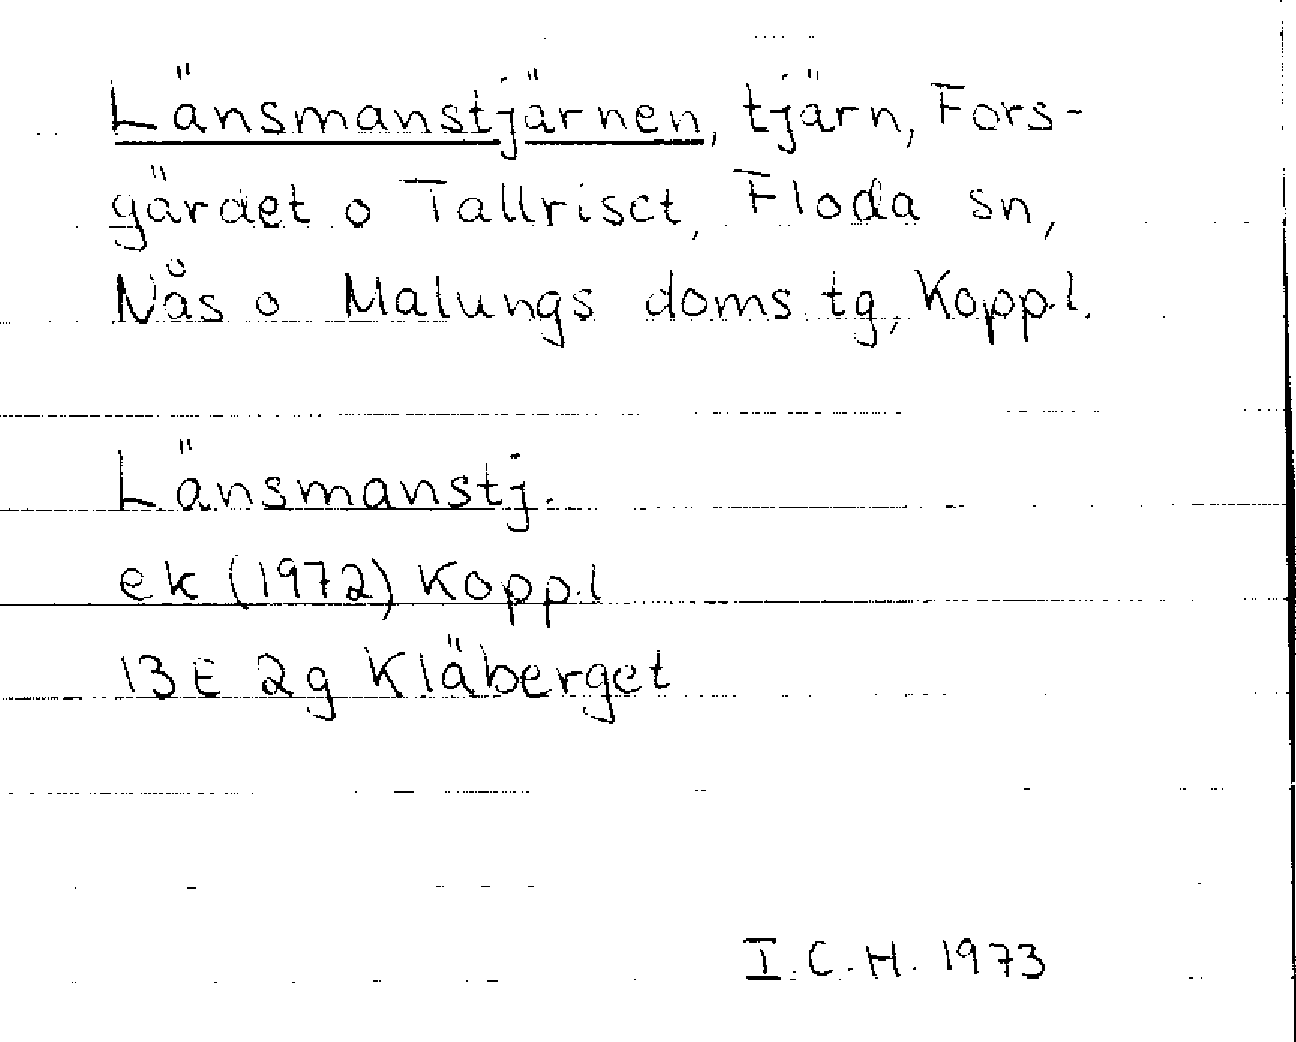 Länsmanstjärnen, tjärn, Fors-
gärdet o Tallriset, Floda sn,
Nås o Malungs doms.tg, Koppl.
Länsmanstj.
ek (1972) Kopp.l
13E 2g Kläberget
I.C.H. 1973